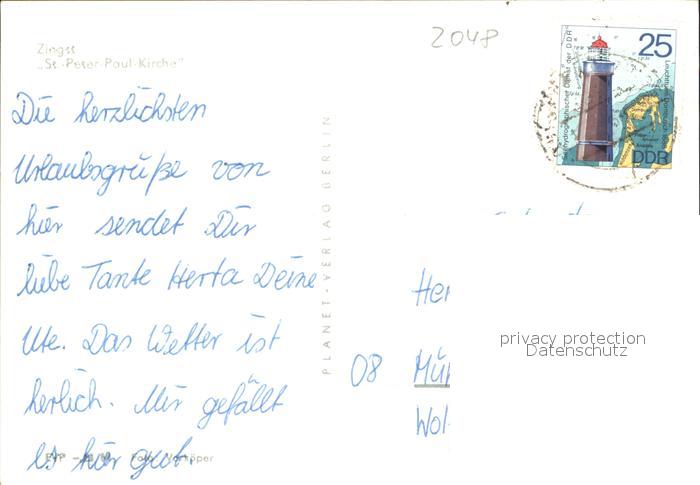 2048
Zingst
„St.-Peter-Paul-Kirche"
25
Seehydrographischer Dienst der DDR
Leuchtturm
DDR
Die herzlichsten
Urlaubsgrüße von
hier sendet Dir
liebe Tante Herta Deine
Ute. Das Wetter ist
herlich. Mir gefällt
es hier gut.
PLANET-VERLAG BERLIN
Her
08 Mün
Wol
privacy protection
Datenschutz
EVP
Foto